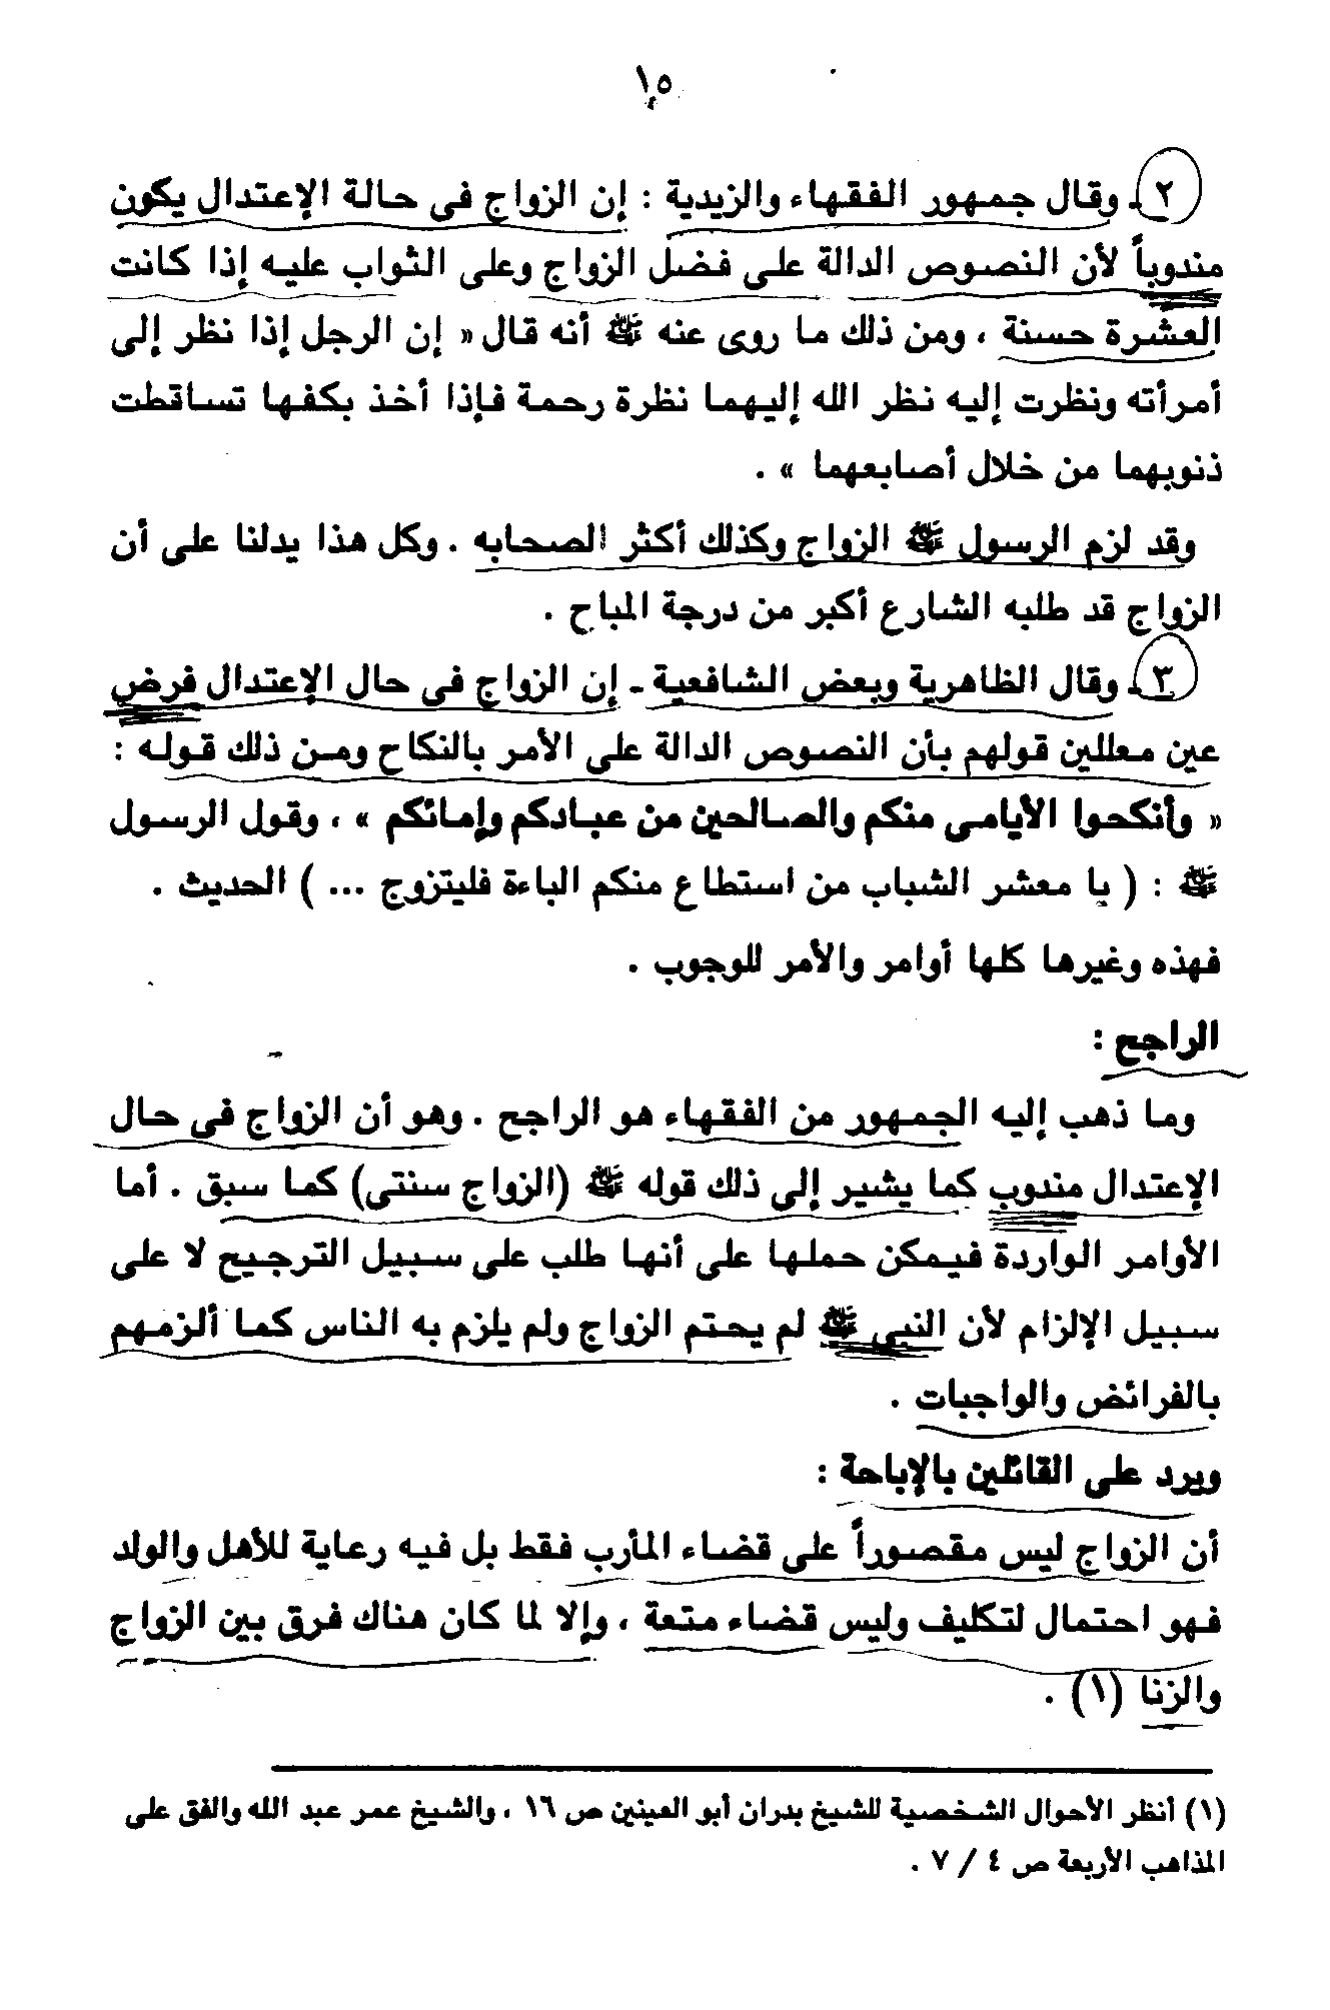 ١٥
٢ـ وقال جمهور الفقهاء والزيدية : إن الزواج فى حالة الإعتدال يكون
مندوباً لأن النصوص الدالة على فضل الزواج وعلى الثواب عليه إذا كانت
العشرة حسنة ، ومن ذلك ما روى عنه ﷺ أنه قال « إن الرجل إذا نظر إلى
أمرأته ونظرت إليه نظر الله إليهما نظرة رحمة فإذا أخذ بكفها تساقطت
ذنوبهما من خلال أصابعهما » .
وقد لزم الرسول ﷺ الزواج وكذلك أكثر الصحابه . وكل هذا يدلنا على أن
الزواج قد طلبه الشارع أكبر من درجة المباح .
٣ـ وقال الظاهرية وبعض الشافعية ـ إن الزواج فى حال الإعتدال فرض
عين معللين قولهم بأن النصوص الدالة على الأمر بالنكاح ومن ذلك قوله :
« وأنكحوا الأيامى منكم والصالحين من عبادكم وإمائكم » ، وقول الرسول
ﷺ : ( يا معشر الشباب من استطاع منكم الباءة فليتزوج ... ) الحديث .
فهذه وغيرها كلها أوامر والأمر للوجوب .
الراجح :
وما ذهب إليه الجمهور من الفقهاء هو الراجح . وهو أن الزواج فى حال
الإعتدال مندوب كما يشير إلى ذلك قوله ﷺ (الزواج سنتى) كما سبق . أما
الأوامر الواردة فيمكن حملها على أنها طلب على سبيل الترجيح لا على
سبيل الإلزام لأن النبى ﷺ لم يحتم الزواج ولم يلزم به الناس كما ألزمهم
بالفرائض والواجبات .
ويرد على القائلين بالإباحة :
أن الزواج ليس مقصوراً على قضاء المأرب فقط بل فيه رعاية للأهل والولد
فهو احتمال لتكليف وليس قضاء متعة ، وإلا لما كان هناك فرق بين الزواج
والزنا (١) .
(١) أنظر الأحوال الشخصية للشيخ بدران أبو العينين ص ١٦ ، والشيخ عمر عبد الله والفق على
المذاهب الأربعة ص ٤ / ٧ .